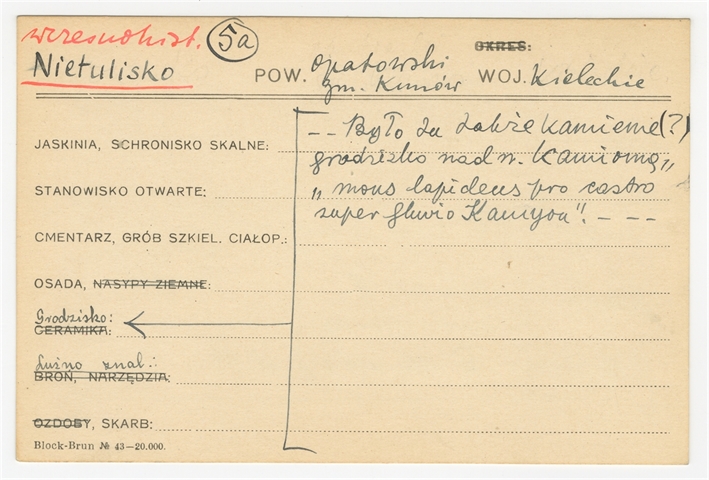 wczesnohist. 5a OKRES:
Nietulisko POW. Opatowski WOJ. Kieleckie
gm. Kunów
-- Było tu także kamienne (?)
JASKINIA, SCHRONISKO SKALNE: grodzisko nad rz. Kamionną,,
STANOWISKO OTWARTE: „mons lapideus pro castro
super fluvio Kamyon". - - -
CMENTARZ, GRÓB SZKIEL. CIAŁOP.:
OSADA, NASYPY ZIEMNE:
Grodzisko:
CERAMIKA:
Luźno znal.:
BROŃ, NARZĘDZIA:
OZDOBY, SKARB:
Block-Brun № 43—20.000.